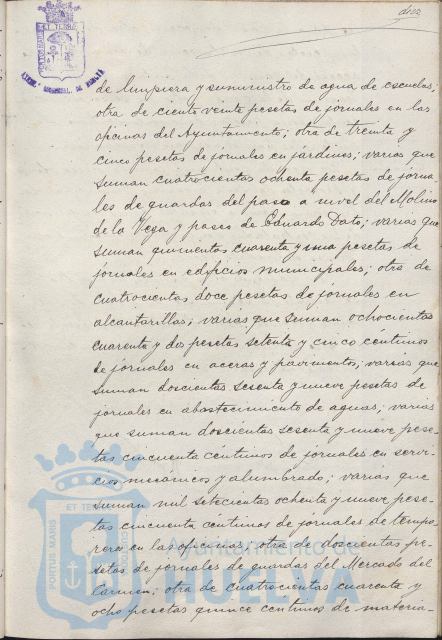 diez
de limpieza y suministro de agua de escuelas;
otra de ciento veinte pesetas de jornales en las
oficinas del Ayuntamiento; otra de treinta y
cinco pesetas de jornales en jardines; varias que
suman cuatrocientas ochenta pesetas de jorna-
les de guardas del paso a nivel del Molino
de la Vega y paseo de Eduardo Dato; varias que
suman quinientas cuarenta y una pesetas de
jornales en edificios municipales; otra de
cuatrocientas doce pesetas de jornales en
alcantarillas; varias que suman ochocientas
cuarenta y dos pesetas setenta y cinco centimos
de jornales en aceras y pavimento; varias que
suman doscientas sesenta y nueve pesetas de
jornales en abastecimiento de aguas; varias
que suman doscientas sesenta y nueve pese-
tas cincuenta centimos de jornales en servi-
cios mecanicos y alumbrado; varias que
suman mil setecientas ochenta y nueve pese-
tas cincuenta centimos de jornales de tempo-
reros en las oficinas; otra de doscientas pe-
setas de jornales de guardas del Mercado del
Carmen; otra de cuatrocientas cuarenta y
ocho pesetas quince centimos de materia-
PORTUS MARIS ET TERRAE CUSTODIA
Ayuntamiento de
HUELVA